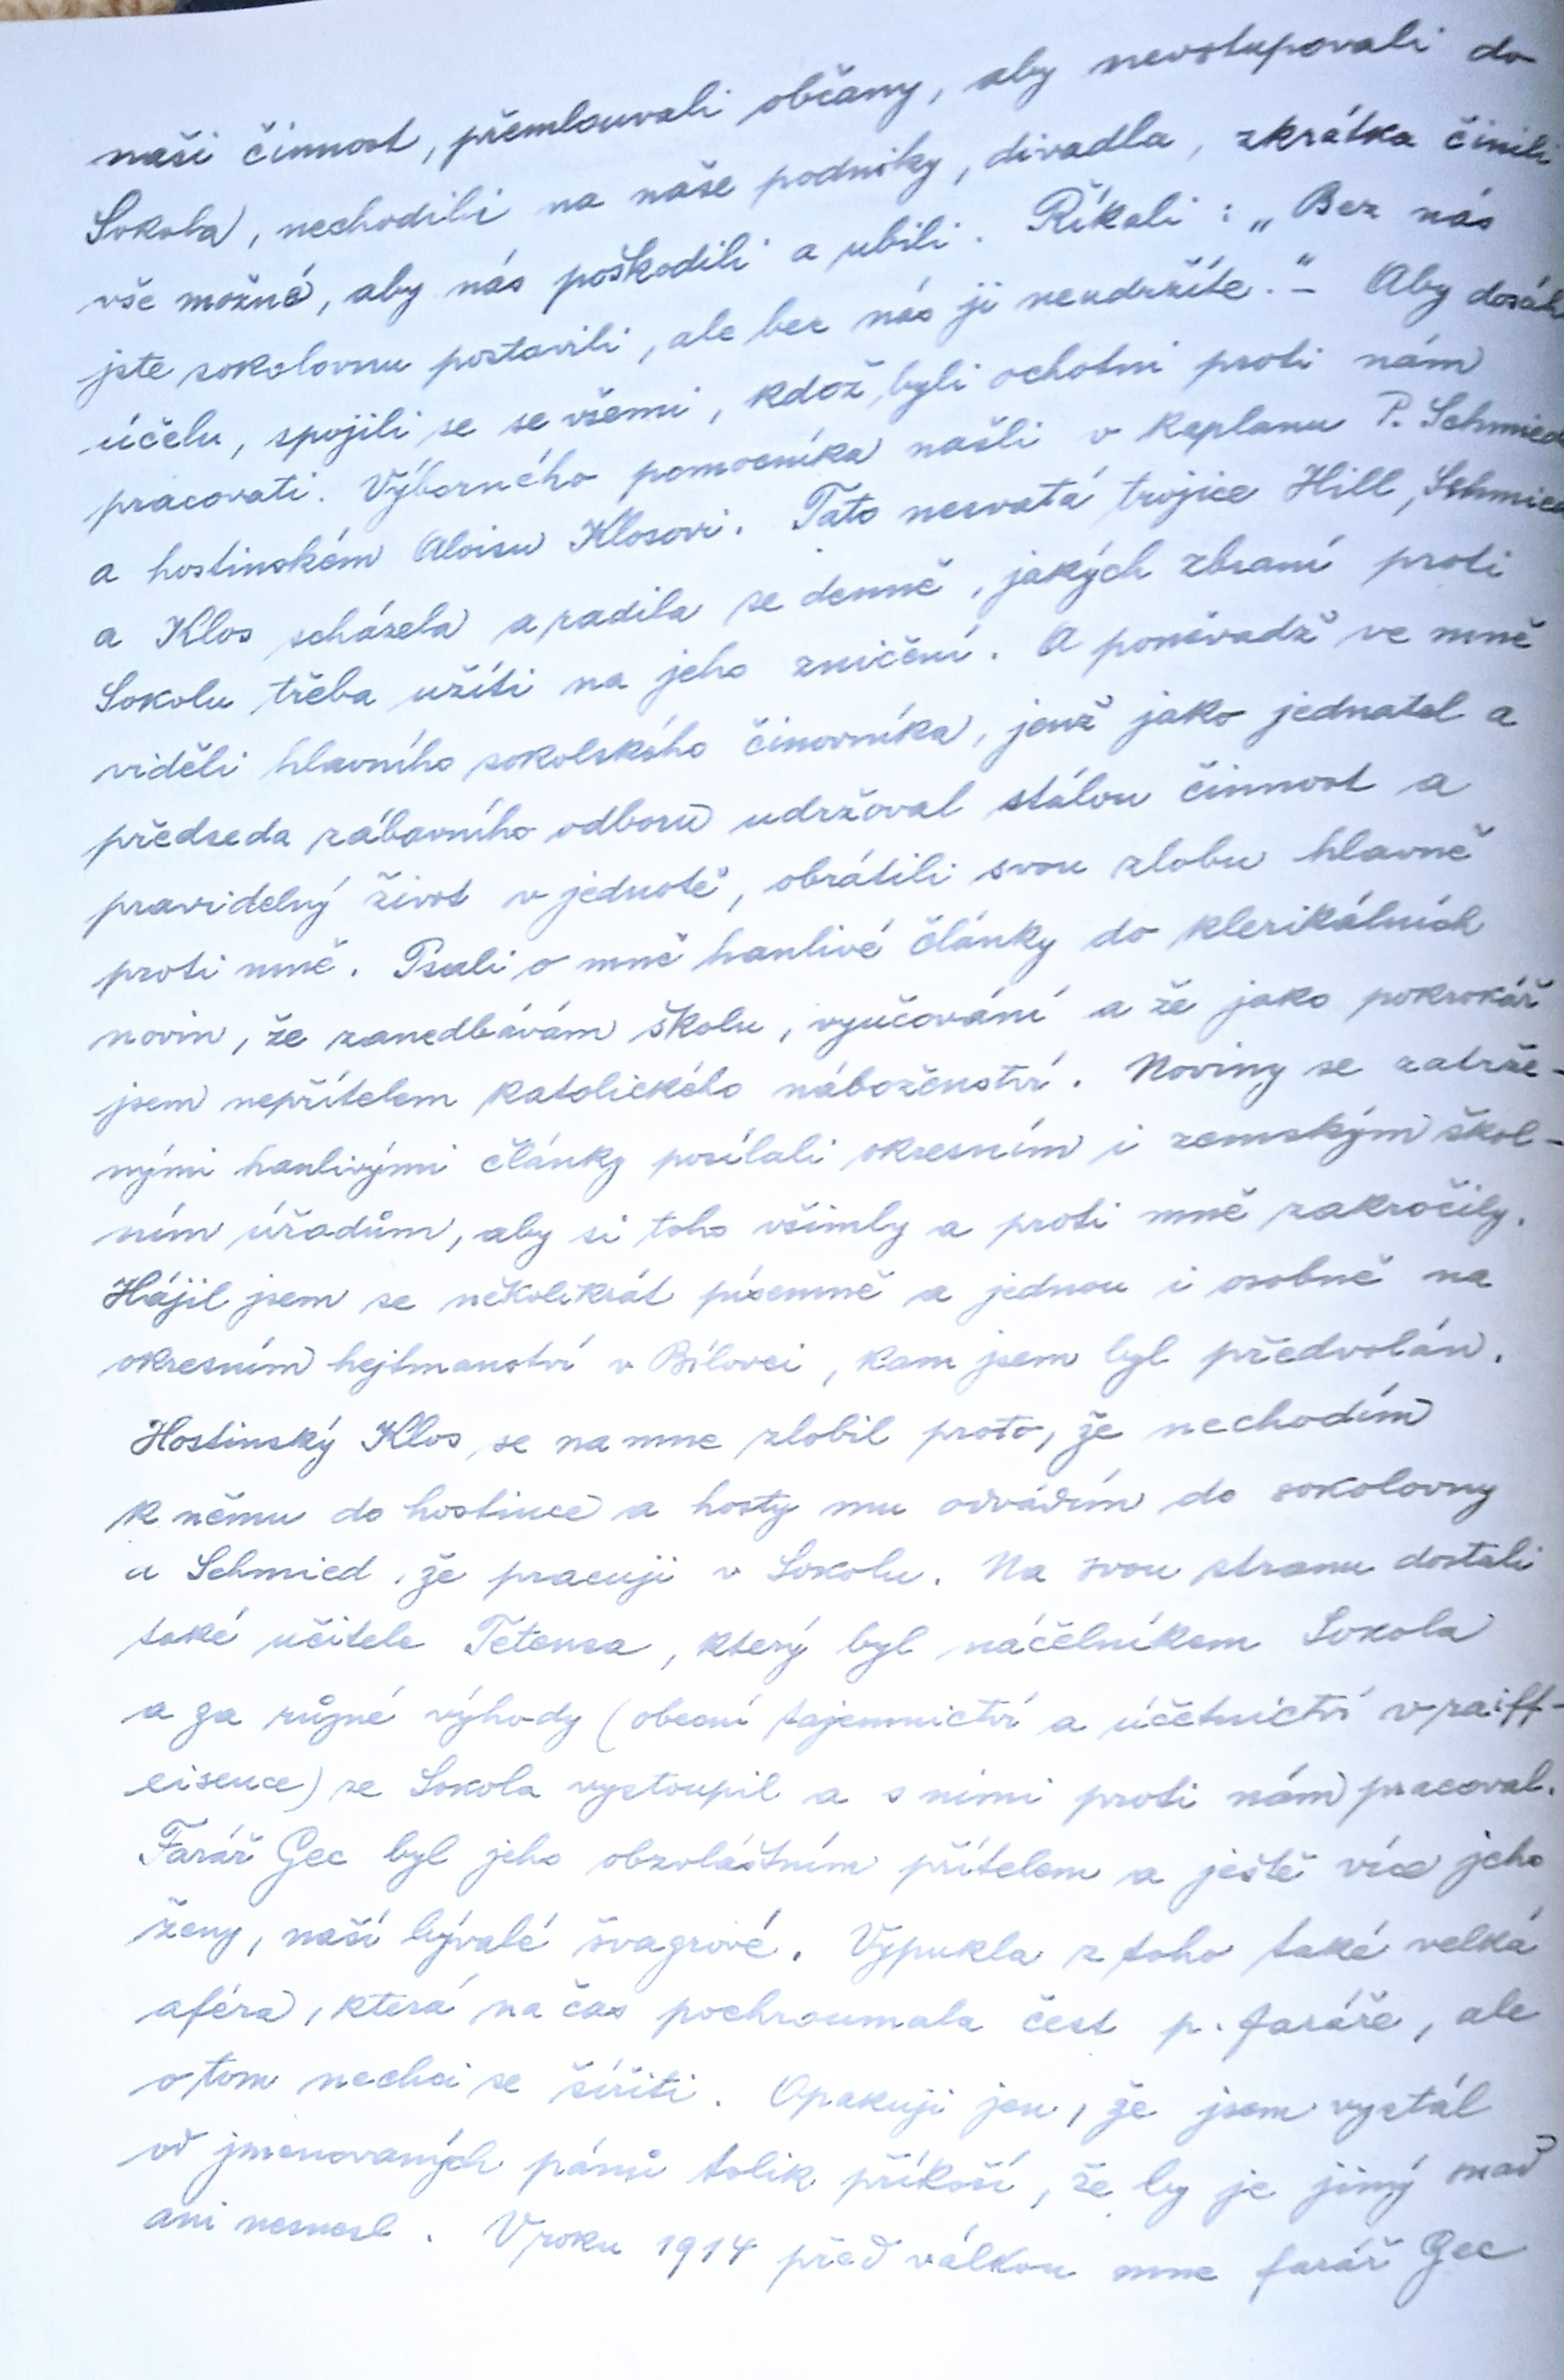 naši činnost, přemlouvali občany, aby nevstupovali do
Sokola, nechodili na naše podniky, divadla, zkrátka činili
vše možné, aby nás poškodili a ubili. Říkali: „Bez nás
jste sokolovnu postavili, ale bez nás ji neudržíte.“ – Aby dosáh
účelu, spojili se se všemi, kdož byli ochotni proti nám
pracovati. Výborného pomocníka našli v kaplanu P. Schmied
a hostinském Aloisu Klosovi. Tato nesvatá trojice Hill, Schmied
a Klos scházela a radila se denně, jakých zbraní proti
Sokolu třeba užíti na jeho zničení. A poněvadž ve mně
viděli hlavního sokolského činovníka, jenž jako jednatel a
předseda zábavního odboru udržoval stálou činnost a
pravidelný život v jednotě, obrátili svou zlobu hlavně
proti mně. Psali o mně hanlivé články do klerikálních
novin, že zanedbávám školu, vyučování a že jako pokrokář
jsem nepřítelem katolického náboženství. Noviny se zatrže-
nými hanlivými články posílali okresním i zemským škol-
ním úřadům, aby si toho všimly a proti mně zakročily.
Hájil jsem se několikrát písemně a jednou i osobně na
okresním hejtmanství v Bílovci, kam jsem byl předvolán.
Hostinský Klos se na mne zlobil proto, že nechodím
k němu do hostince a hosty mu odvádím do sokolovny
a Schmied, že pracuji v Sokolu. Na svou stranu dostali
také učitele Tetensa, který byl náčelníkem Sokola
a za různé výhody (obecní tajemnictví a účetnictví v raiff-
eisence) ze Sokola vystoupil a s nimi proti nám pracoval.
Farář Gec byl jeho obzvláštním přítelem a ještě více jeho
ženy, naší bývalé švagrové. Vypukla z toho také velká
aféra, která na čas pochroumala čest p. faráře, ale
o tom nechci se šířiti. Opakuji jen, že jsem vystál
od jmenovaných pánů tolik příkoří, že by je jiný snad
ani nesnesl. V roku 1914 před válkou mne farář Gec